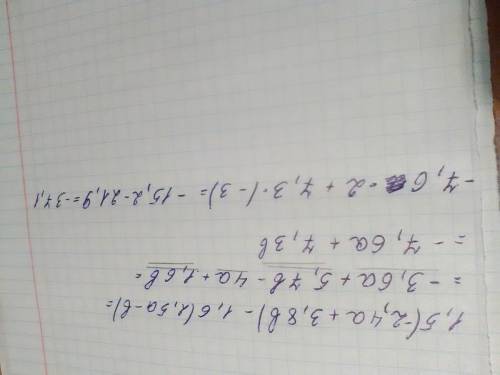 1,5(-2,4a + 3,8b) - 1,6(2,5a - b) =
= -3,6a + 5,7b - 4a + 1,6b =
= -7,6a + 7,3b
-7,6 · 2 + 7,3 · (-3) = -15,2 - 21,9 = -37,1